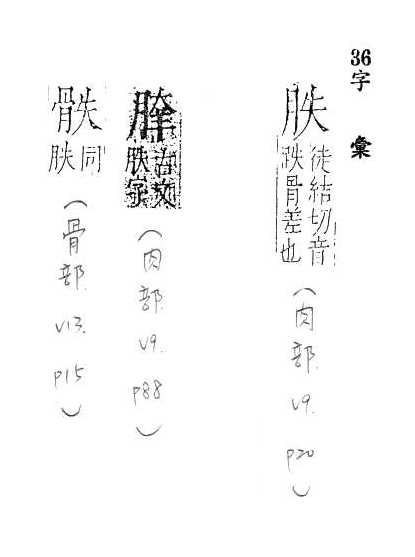 36字 彙
胅
徒結切音
跌骨差也
(肉部. v9. p20)
古文
胅字
(肉部 v9. p88)
同
胅
(骨部. v13. p15)